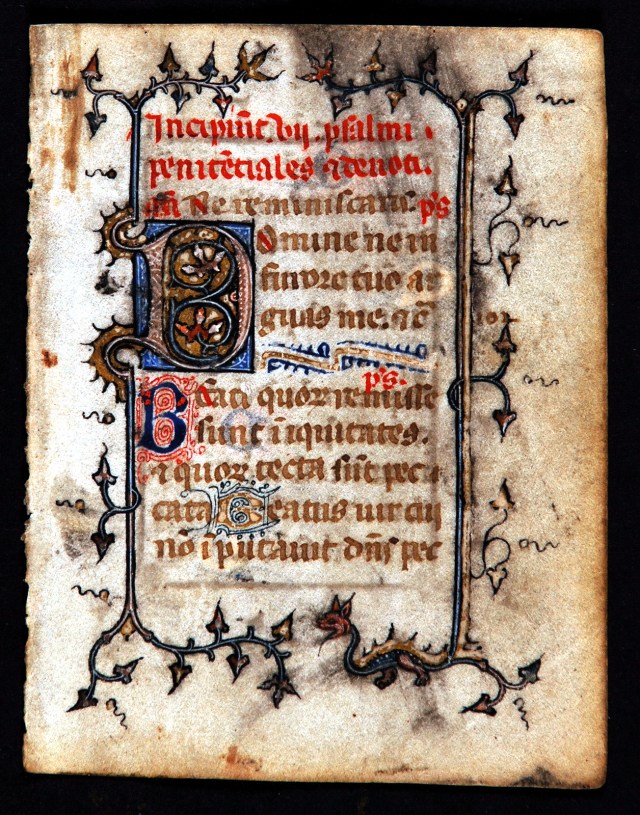 Incipiūt. vij. psalmi.
penitēciales ⁊ deuoti.
añ Ne reminiscaris. p̄s
Domine ne in
furore tuo ar
guas me. ⁊c̄
p̄s.
Beati quor remisse
sunt īiquitates.
⁊ quor tecta sūt pecc
cata Beatus uir cui
nō īputauit dn̄s pec